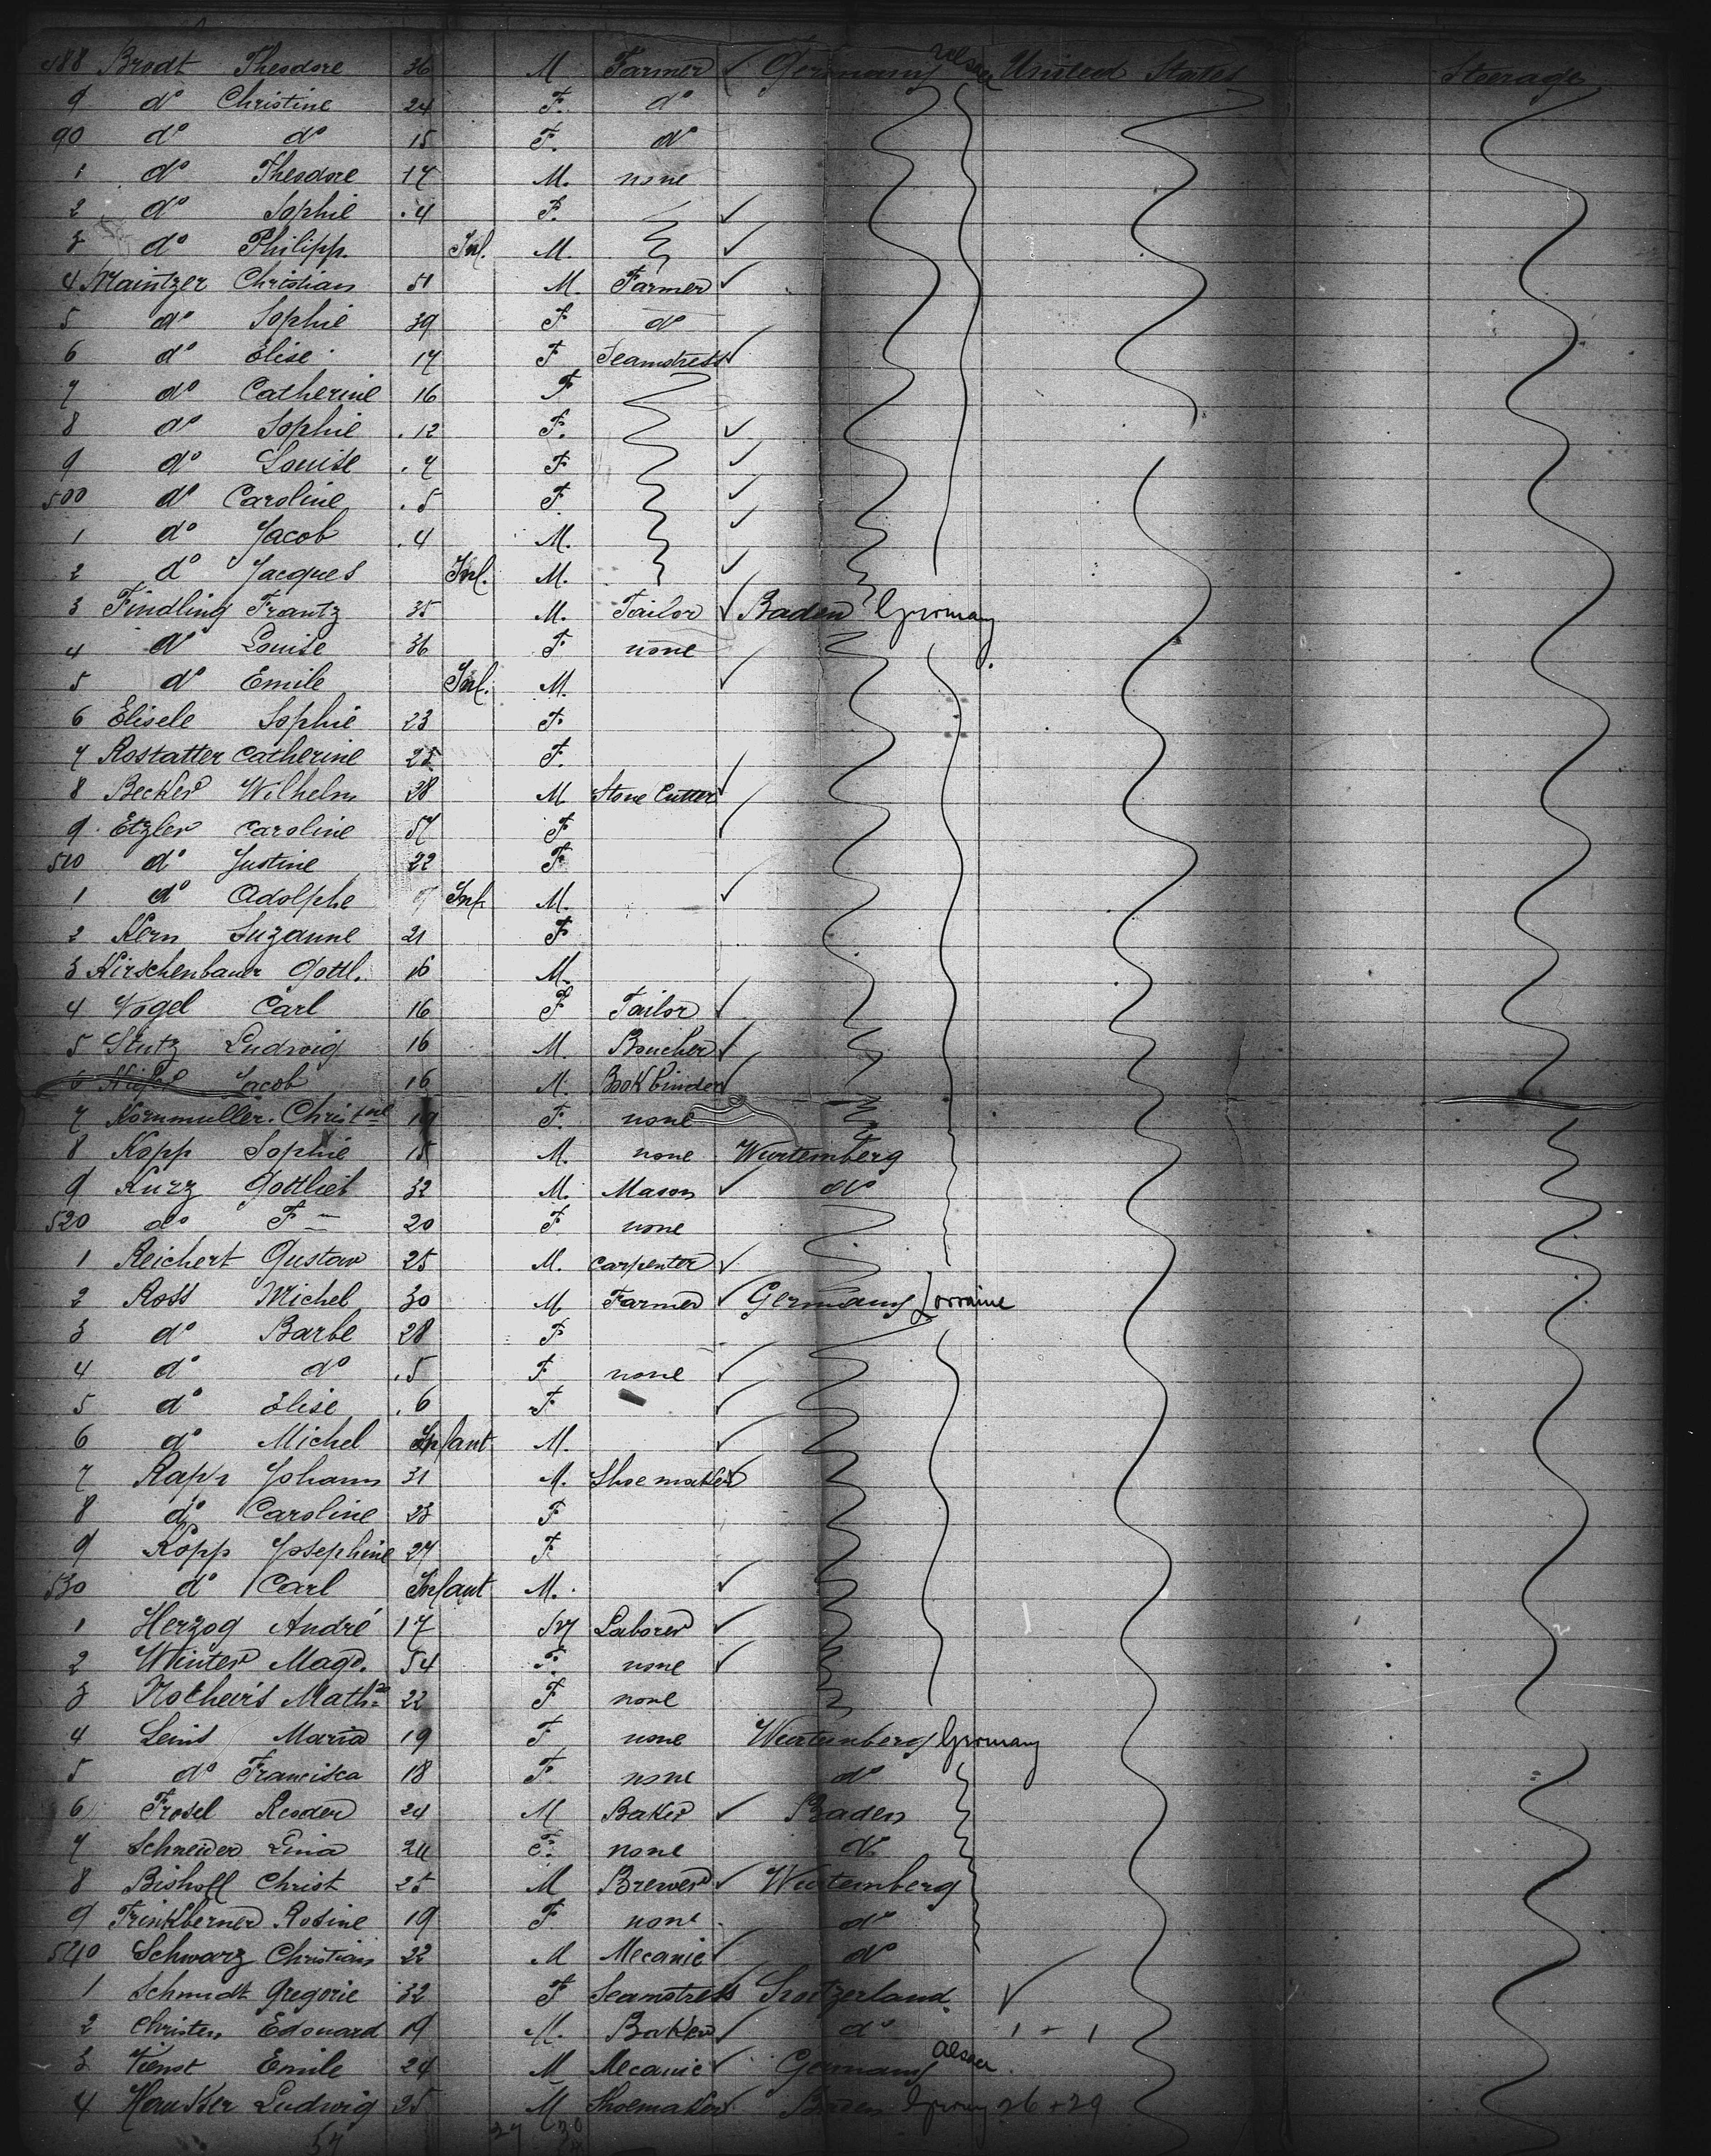 488 Brodt Theodore 36 M Farmer ✓ Germany Alsace United States Steerage
9 do Christine 24 F. do
90 do do 15 F. do
1 do Theodore 17 M. none
2 do Sophie .4 F. ✓
3 do Philipp. Inf. M. ✓
4 Maintzer Christian 51 M Farmer ✓
5 do Sophie 39 F do
6 do Elise 17 F Seamstress ✓
7 do Catherine 16 F
8 do Sophie .12 F. ✓
9 do Louise .7 F ✓
500 do Caroline .5 F. ✓
1 do Jacob .4 M. ✓
2 do Jacques Inf. M. ✓
3 Findling Frantz 35 M. Tailor ✓ Baden Germany
4 do Louise 36 F none
5 do Emile Inf. M. ✓
6 Elisele Sophie 23 F.
7 Rostatter Catherine 25 F.
8 Becker Wilhelm 28 M Stone Cutter ✓
9 Etzler Caroline 57 F ✓
510 do Justine 22 F.
1 do Adolphe Inf. M. ✓
2 Kern Suzanne 21 F
3 Kirschenbauer Gottl. 16 M.
4 Vogel Carl 16 F Tailor ✓
5 Stutz Ludwig 16 M. Boucher ✓
6 Jacob 16 M. Bookbinder ✓
7 Kornmuller Christine 19 F. none
8 Kopp Sophie 15 M. none Wurtemberg
9 Kurz Gottlieb 32 M. Mason ✓ do
520 do F— 20 F none
1 Reichert Gustav 25 M. Carpenter ✓
2 Ross Michel 30 M Farmer ✓ Germany Lorraine
3 do Barbe 28 F
4 do do .5 F none ✓
5 do Elise .6 F ✓
6 do Michel Infant M. ✓
7 Rapp Johann 31 M. Shoemaker ✓
8 do Caroline 23 F
9 Kopp Josephine 27 F
530 do Carl Infant M. ✓
1 Herzog André 17 M Laborer ✓
2 Winter Magd. 54 F. none ✓
3 Math 22 F none
4 Leins Maria 19 F none Wurtemberg Germany
5 do Francisca 18 F. none do
6 Frosel 24 M Baker ✓ Baden
7 Schneider Lina 24 F. none do
8 Bishoff Christ 25 M Brewer ✓ Wurtemberg
9 Trinkberner Rosine 19 F none do
540 Schwarz Christian 22 M Mecanic ✓ do
1 Schmidt Gregorie 32 F Seamstress Switzerland ✓
2 Christen Edouard 19 M. Baker ✓ do 1 + 1
3 Emile 24 M Mecanic ✓ Germany Alsace
4 Ludwig 25 M Shoemaker ✓ Baden Germany 26 + 29
57 27 30